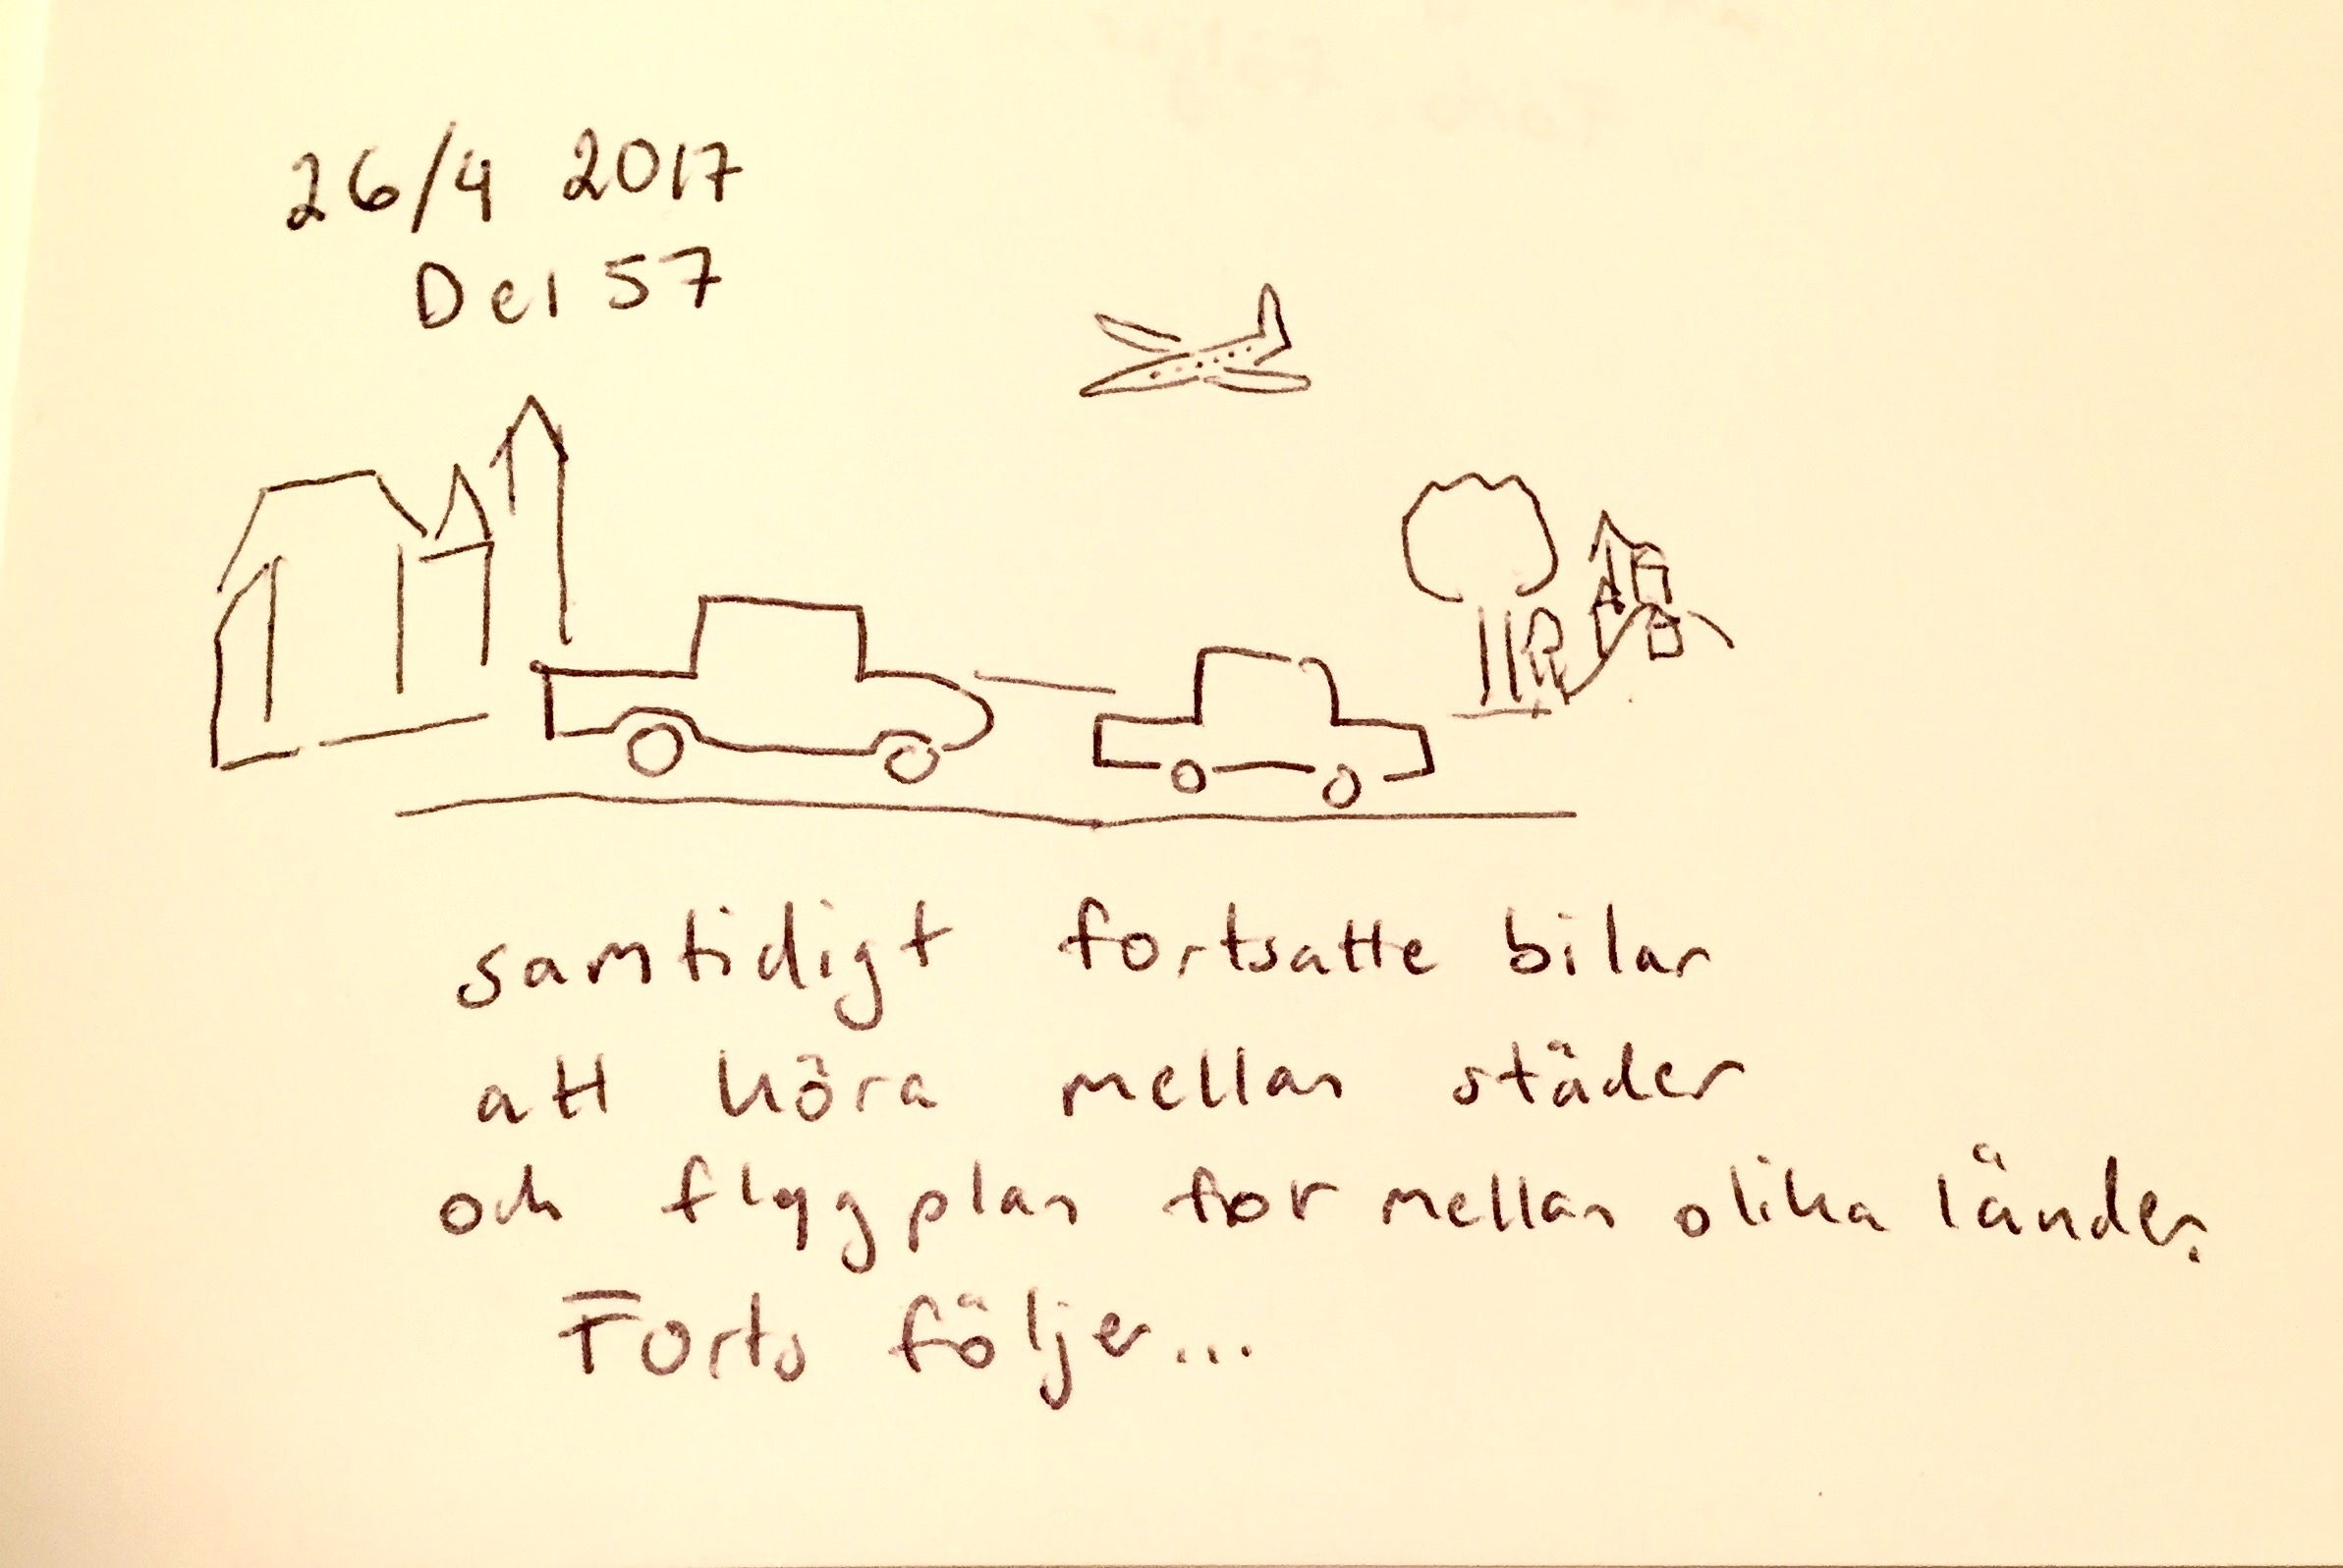 26/4 2017
Del 57
samtidigt fortsatte bilar
att köra mellan städer
och flygplan for mellan olika länder.
Forts följer...